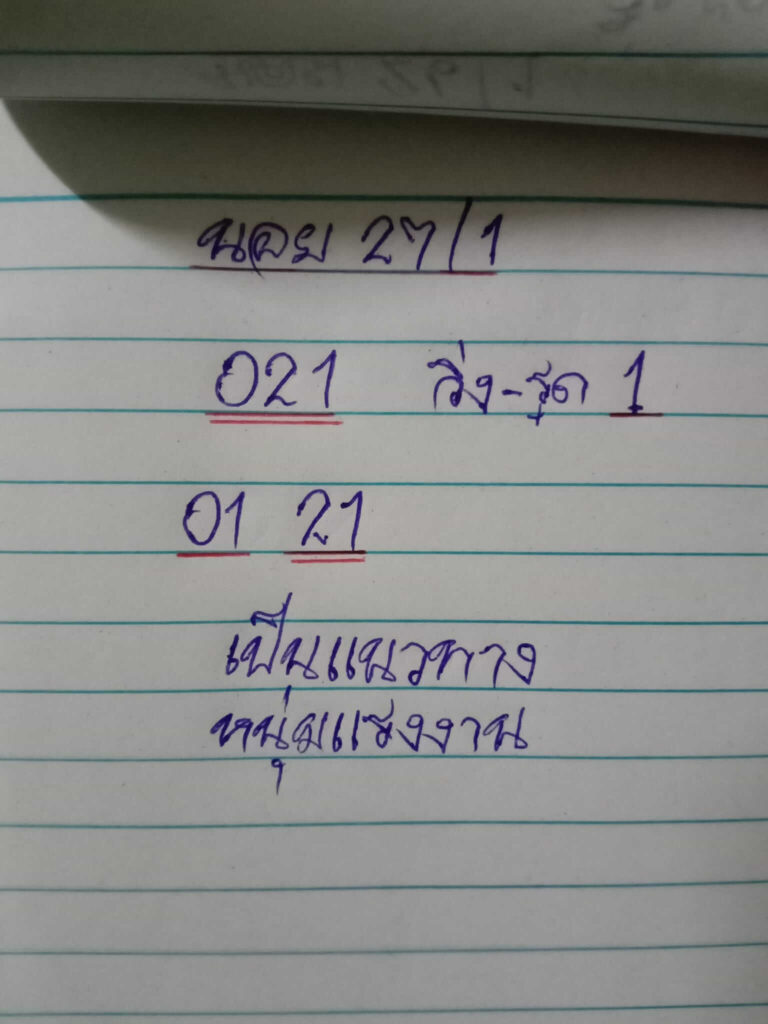 นอย 27/1
021 วิ่ง-รูด 1
01 21
เป็นแนวทาง
หนุ่มแรงงาน